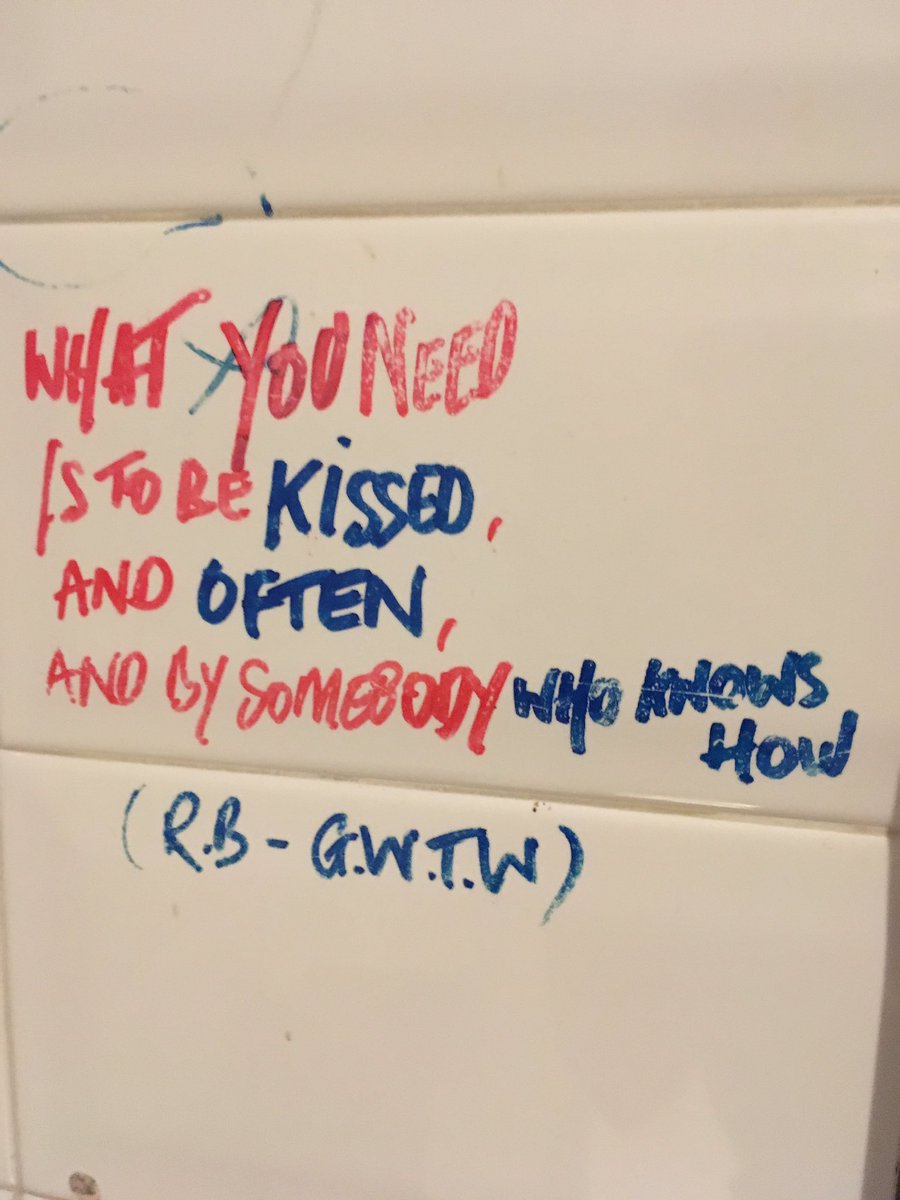 WHAT YOU NEED
IS TO BE KiSSED,
AND OFTEN,
AND BY SOMEBODY WHO KNOWS
HOW
(R.B - G.W.T.W)